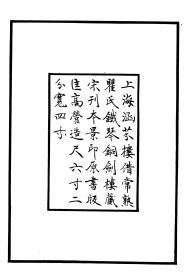 上海涵芬樓借常熟
瞿氏鐵琴銅劍樓藏
宋刊本景印原書版
匡高營造尺六寸二
分寬四寸